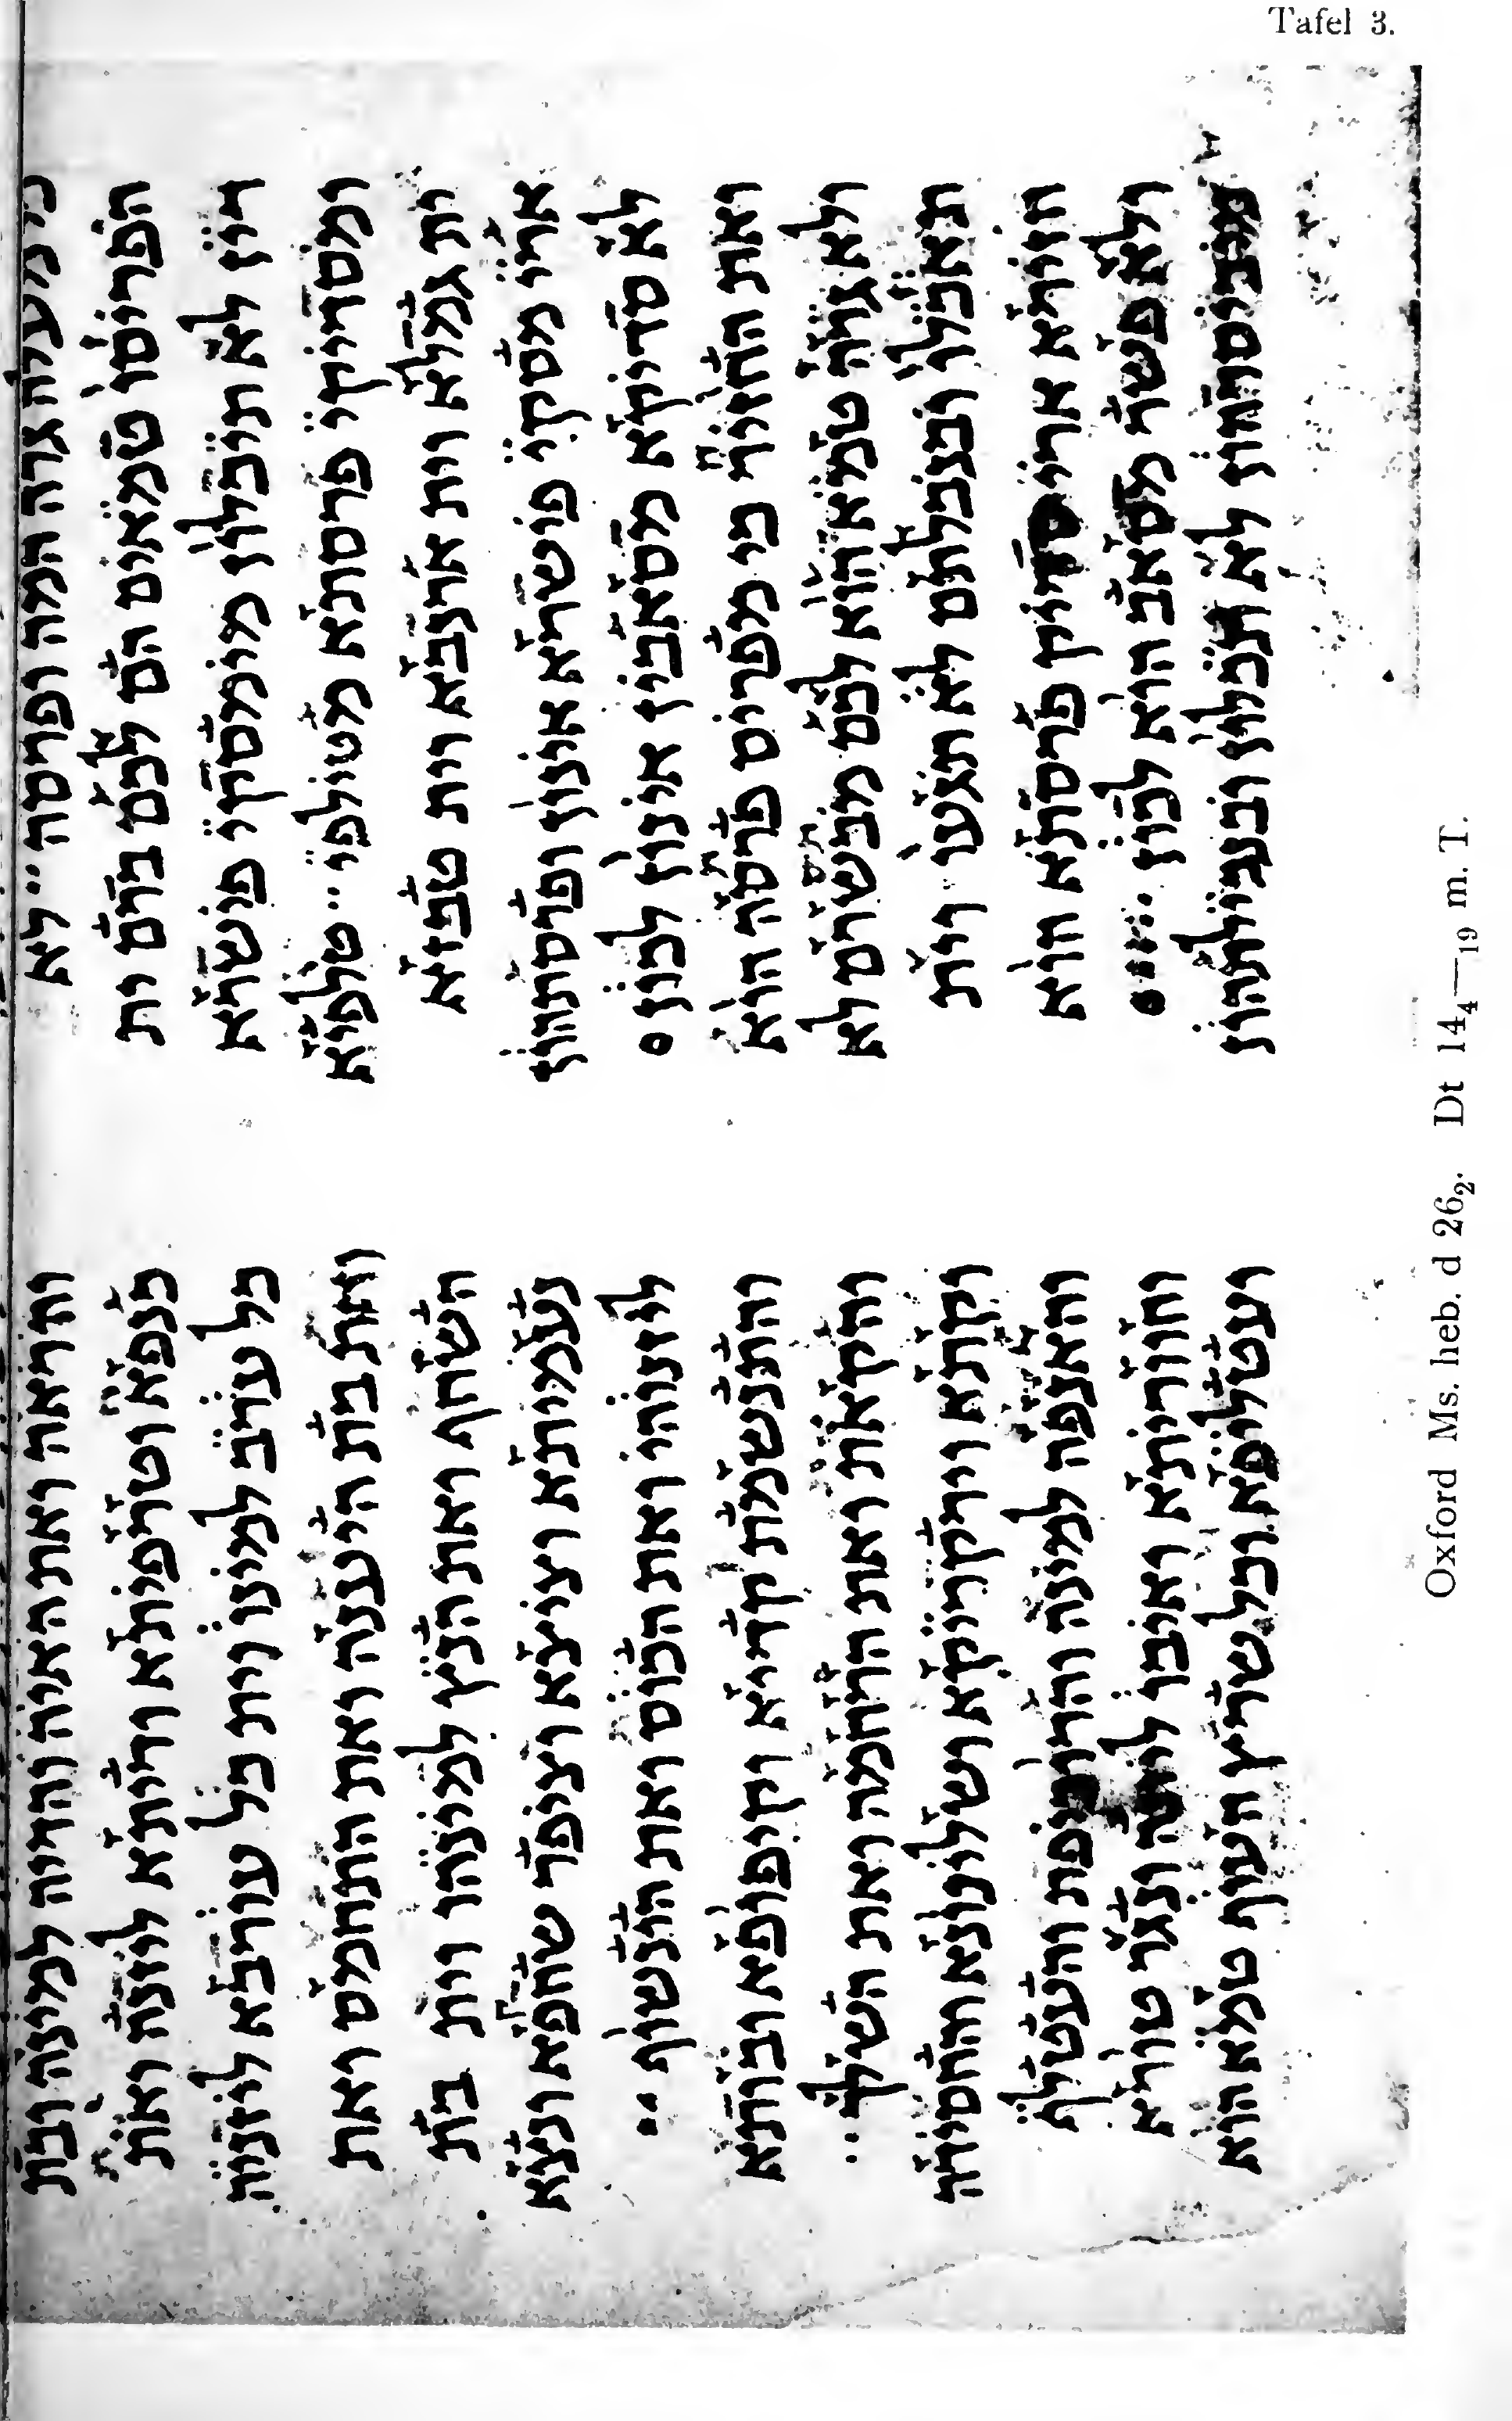 כי מעלה גרה המה ופרסה ׃ לא
הפריסו טמאים הם לכם ברם ית
דין לא תיכלון מימסקי פישרא
ומסדיקי פרסתא מטילפי ׃ טלפיא
ית גמלא וית ארנבא וית טפזא
ארי מסקי פישרא אינון ופרסתהון
לא סדיקא מסאבין אינון לכון
ואת החזיר כי מפריס פרסה הוא
ולא גרה טמא הוא לכם מבשרם לא
תאכלו ובנבלתם לא תגעו וית
חזירא ארי סדיק פרסתא הוא
ולא פשר מסאב הוא לכון
מביסרהון לא תכלון ובנבילתהון
והראה ואת האיה והדיה למינה ובת
כנפא וטריפיתא ודיתא לזנה ואת
כל עורב למינו וית כל עורבא לזניה
ואת בת היענה ואת התחמס ואת
השחף ואת הנץ למינהו וית בת
נעמיתא וציצא וציפר שחפא ונצא
לזנוהי ואת הכוס ואת הינשוף ׃
והתנשמת קריא וקיפופא ובותא
והקאת ואת הרחמה ואת השלך ׃
וקתא וירקריקא ושלינונא והחסידה
והאנפה למינה והדוכיפת והעטלף
וחוריתא ואיבו לזנה ונגר טורא
ועטליפא וכל שרץ העוף טמא הוא
Tafel 3.
Oxford Ms. heb. d 26₂. Dt 14₄—₁₉ m. T.